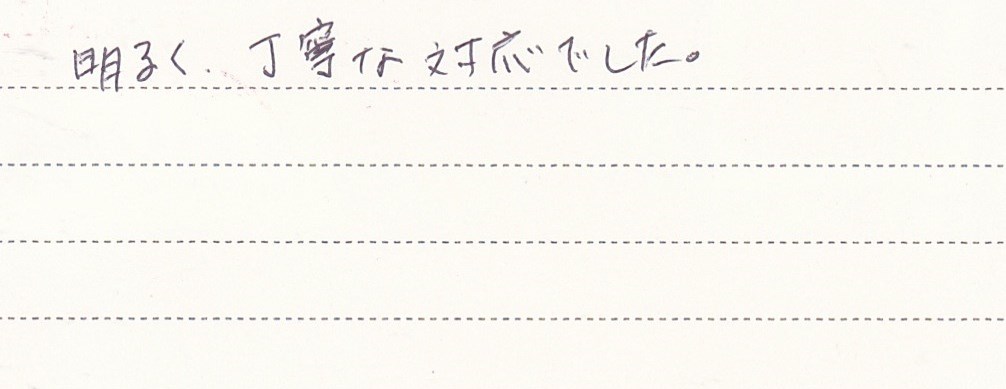 明るく、丁寧な対応でした。